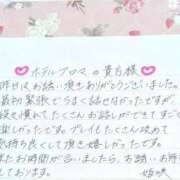 ホテルプロマの貴方様
昨日はお誘い頂きありがとうございました。
最初緊張で今く話せなかったですが、
段々慣れてたくさんお話しができてすごく
楽しかったです。プレイもたくさん攻めて
気持ち良くして頂き嬉しかったです。
またお時間が合いましたら、お誘いお待ち
しております。
姫咲